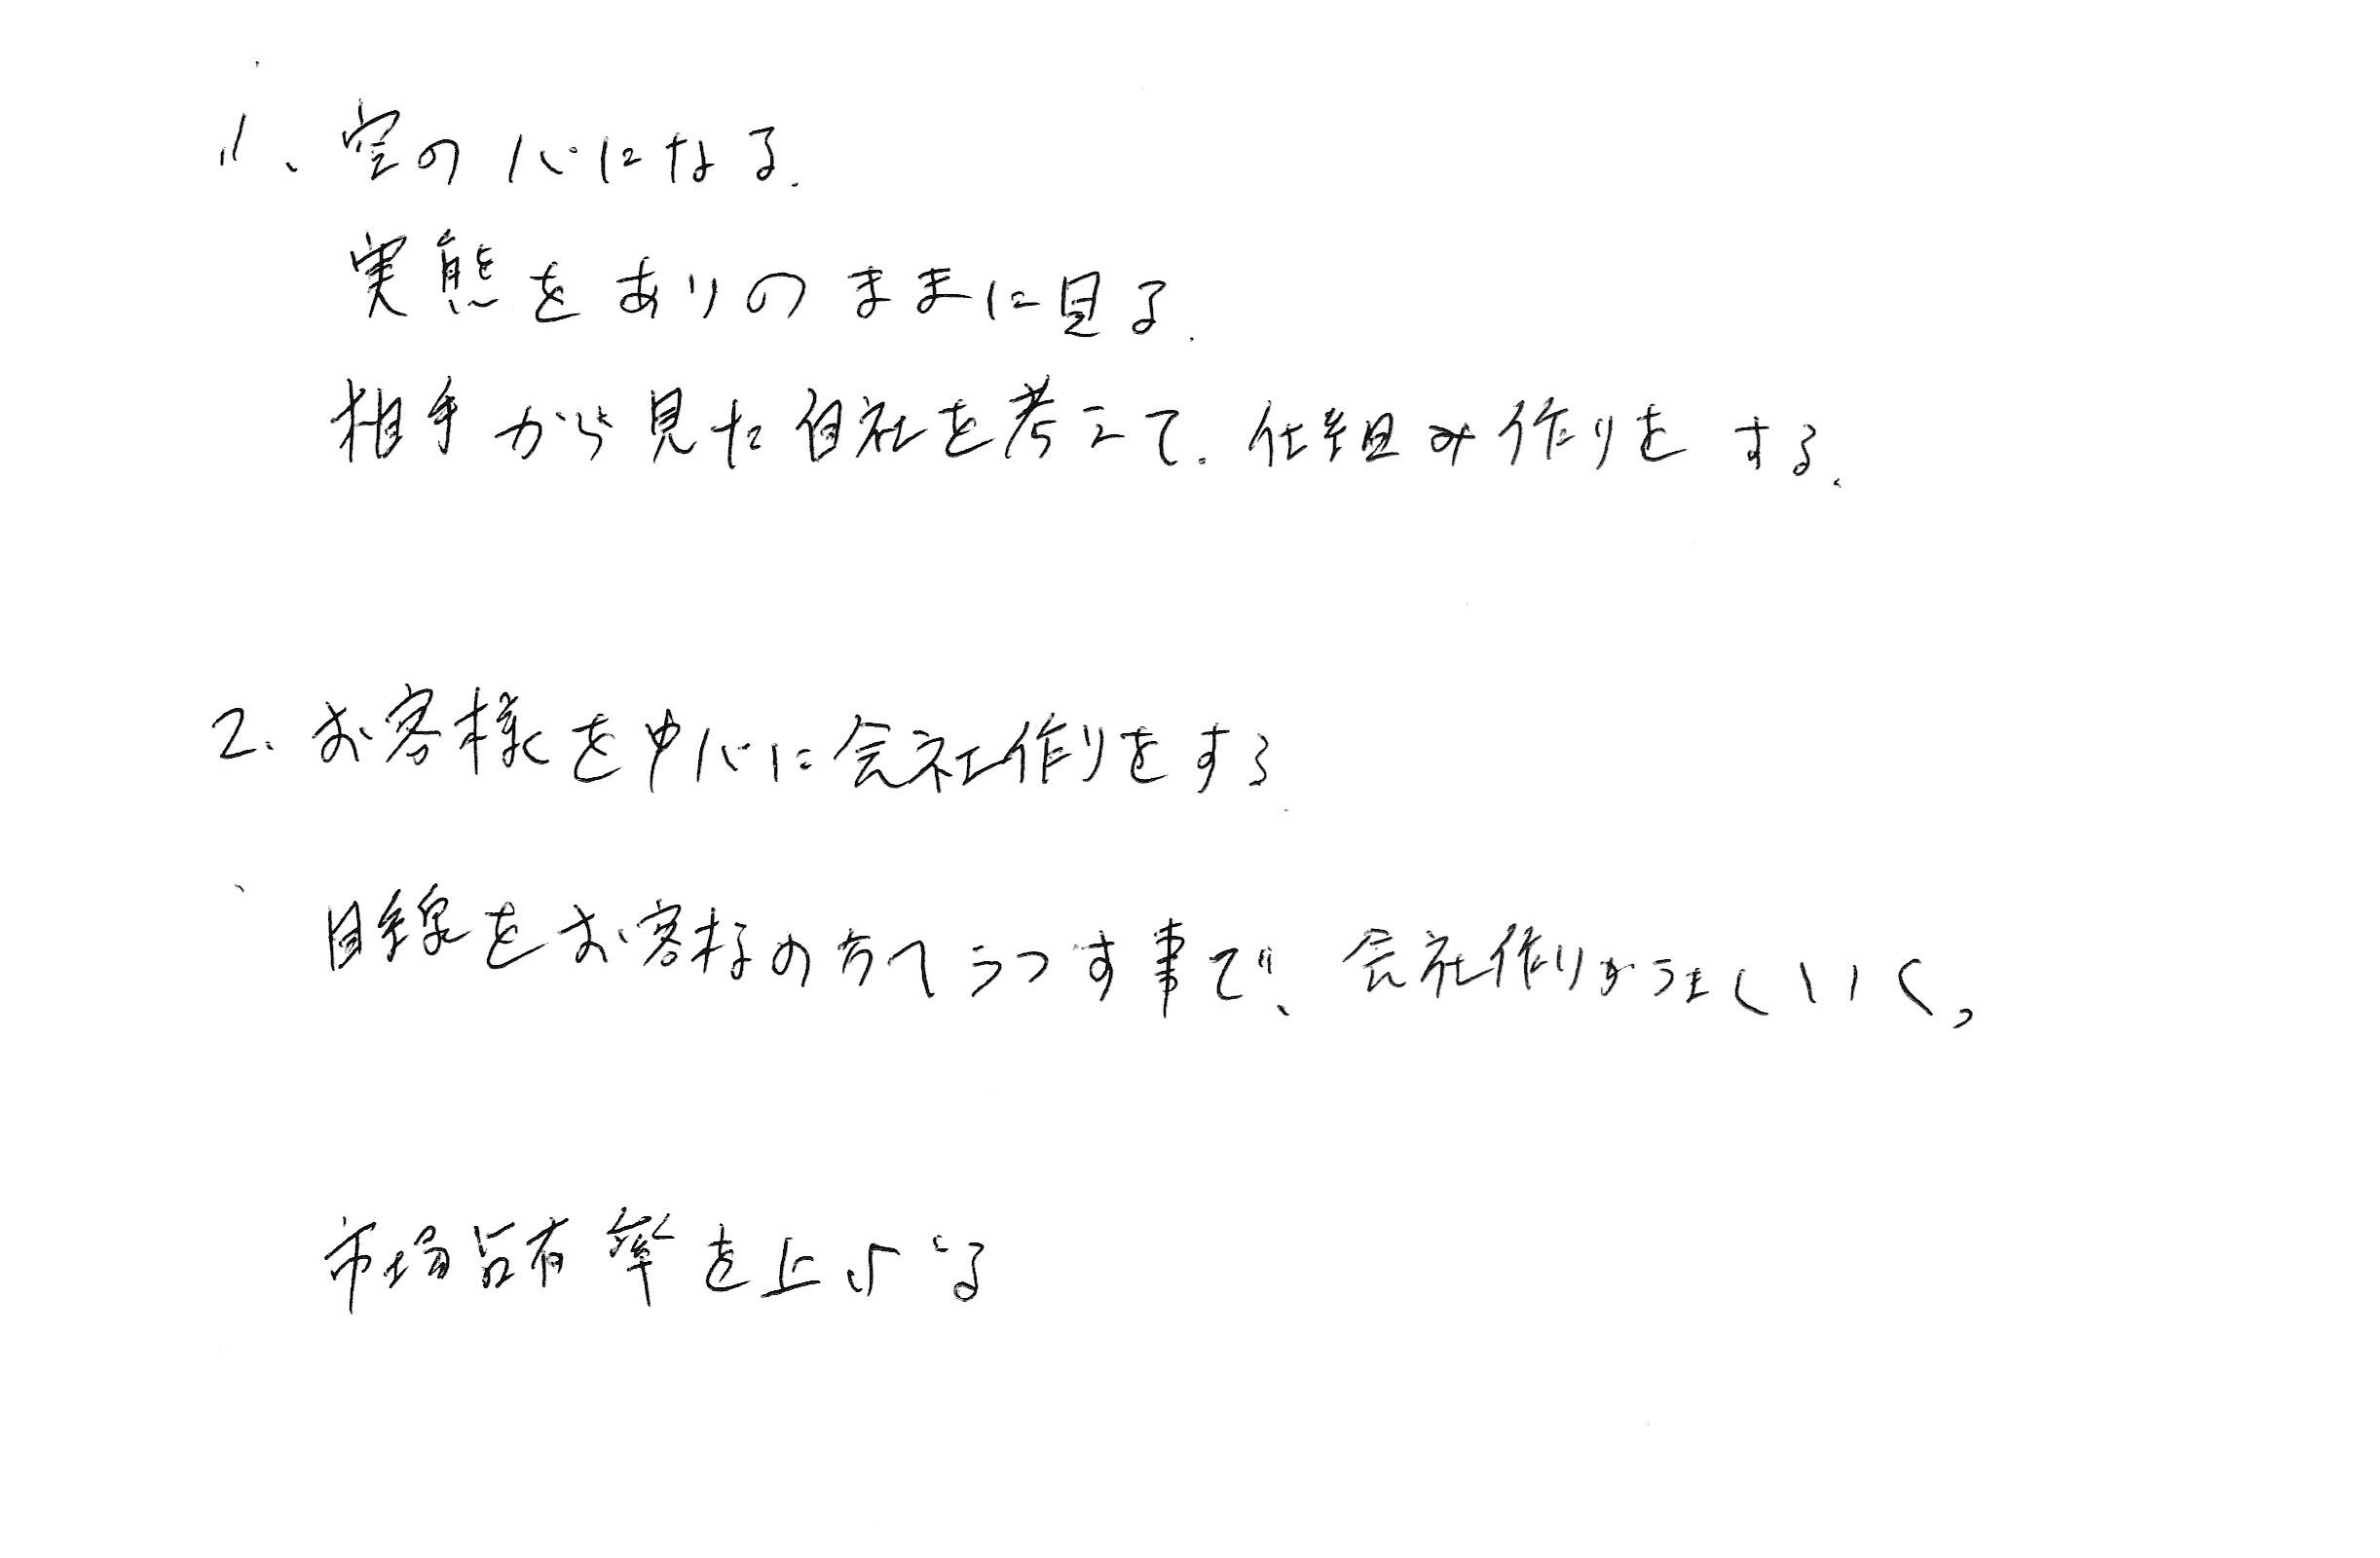 1、空の心になる。
実態をありのままに見る。
相手から見た自社を考えて、仕組み作りをする。
2、お客様を中心に会社作りをする。
目線をお客様の方へうつす事で、会社作りがうまくいく。
市場占有率を上げる